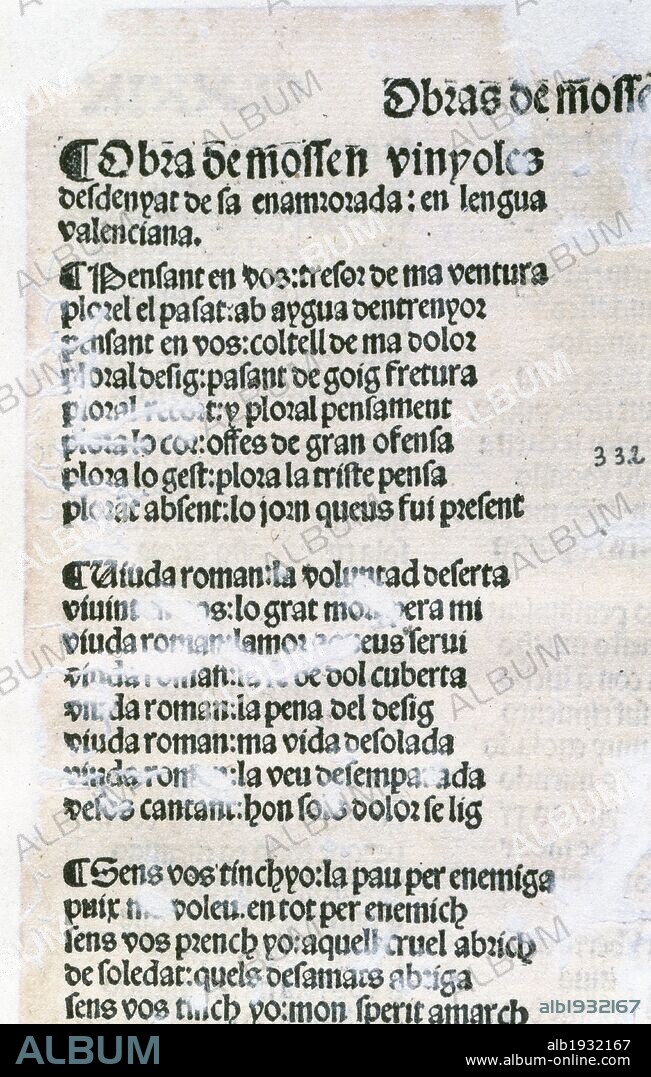 Obras de mosse
¶ Obra de mossen vinyoles
desdenyat de sa enamorada: en lengua
valenciana.
¶ Pensant en vos: tresor de ma ventura
plorel el pasat: ab aygua dentrenyor
pensant en vos: coltell de ma dolor
ploral desig: pasant de goig fretura
ploral recort: y ploral pensament
plora lo cor: offes de gran ofensa
plora lo gest: plora la triste pensa
plorat absent: lo jorn queus fui present
332
¶ Uiuda roman: la voluntad deserta
viuint vos: lo grat mon pera mi
viuda roman: lamor queus serui
viuda roman: de dol cuberta
viuda roman: la pena del desig
viuda roman: ma vida desolada
viuda roman: la veu desemparada
desos cantant: hon solo dolor se lig
¶ Sens vos tinch yo: la pau per enemiga
puix me voleu. en tot per enemich
sens vos prench yo: aquell cruel abrich
de soledat: quels desamats abriga
sens vos tinch yo: mon sperit amarch
ALBUM
alb1932167
ALBUM
alb1932167
album-online.com